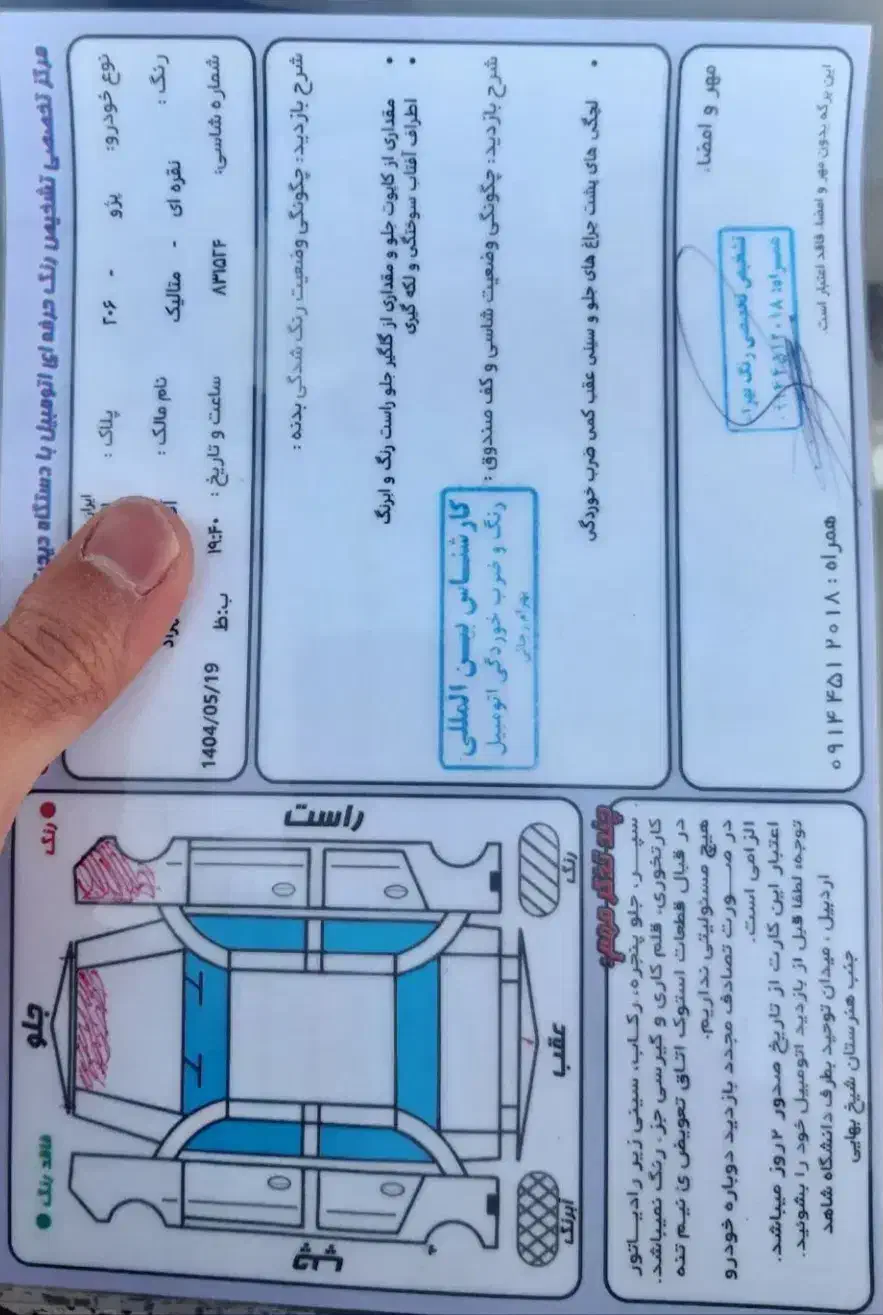 نوع خودرو: پژو - ۲۰۶ پلاک :
رنگ : نقره ای - متالیک نام مالک :
شماره شاسی: ۸۳۱۵۲۴ ساعت و تاریخ : ۱۹:۴۰ ب:ظ 1404/05/19
شرح بازدید: چگونگی وضعیت رنگ شدگی بدنه :
• مقداری از کاپوت جلو و مقداری از گلگیر جلو راست رنگ و ابرنگ
• اطراف آفتاب سوختگی و لکه گیری
کارشناس بین المللی
رنگ و ضرب خوردگی اتومبیل
شرح بازدید: چگونگی وضعیت شاسی و کف صندوق :
• لچکی های پشت چراغ های جلو و سینی عقب کمی ضرب خوردگی
مهر و امضا:
تشخیص تخصصی رنگ
همراه : ۰۹۱۴ ۴۵۱ ۲۰۱۸
این برگه بدون مهر و امضا فاقد اعتبار است
رنگ
فاقد رنگ
راست
جلو
عقب
چپ
رنگ
ابرنگ
سپر، جلو پنجره، رکاب، سینی زیر رادیاتور
کارتخوری، قلم کاری و گیرسی جز، رنگ نمیباشد.
در قبال قطعات استوک اتاق تعویض ی نیم تنه
هیچ مسئولیتی نداریم.
در صورت تصادف مجدد بازدید دوباره خودرو
الزامی است.
اعتبار این کارت از تاریخ صدور ۲ روز میباشد.
توجه: لطفا قبل از بازدید اتومبیل خود را بشوئید.
اردبیل ، میدان توحید بطرف دانشگاه شاهد
جنب هنرستان شیخ بهایی